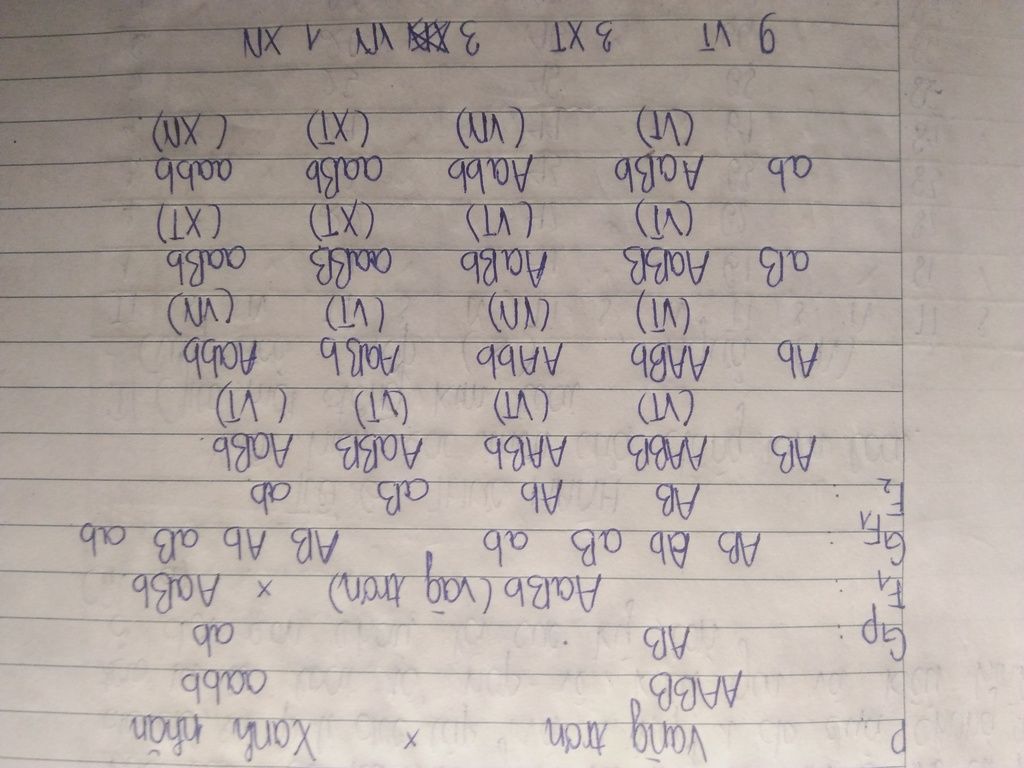 P Vàng trơn × Xanh nhăn
AABB aabb
Gp : AB ab
F1 : AaBb (vàg trơn) × AaBb
GF1 : AB Ab aB ab AB Ab aB ab
F2 : AB Ab aB ab
AB AABB AABb AaBB AaBb
(VT) (VT) (VT) (VT)
Ab AABb AAbb AaBb Aabb
(VT) (VN) (VT) (VN)
aB AaBB AaBb aaBB aaBb
(VT) (VT) (XT) (XT)
ab AaBb Aabb aaBb aabb
(VT) (VN) (XT) (XN)
9 VT 3 XT 3 VN 1 XN